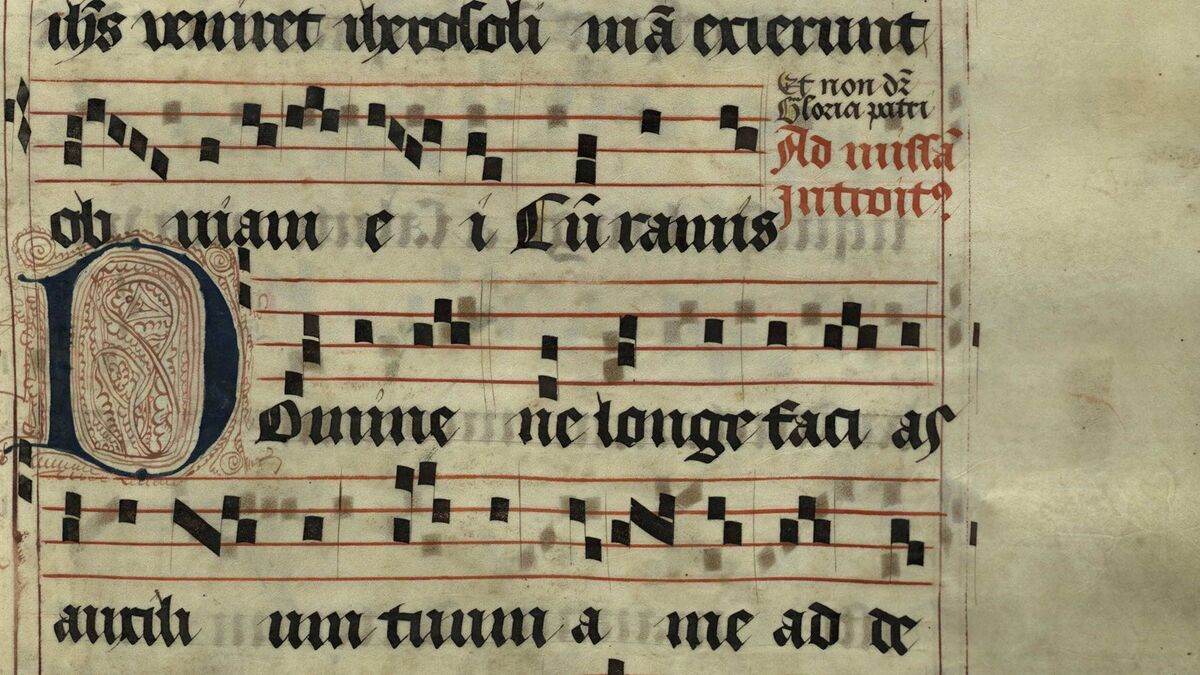 ihs̄ veniret iherosoli mā exierunt
Et non dr̄
Gloria patri
ob viam e i Cū ramis
Ad missā
Introit⁹
Domine ne longe faci as
auxili um tuum a me ad de